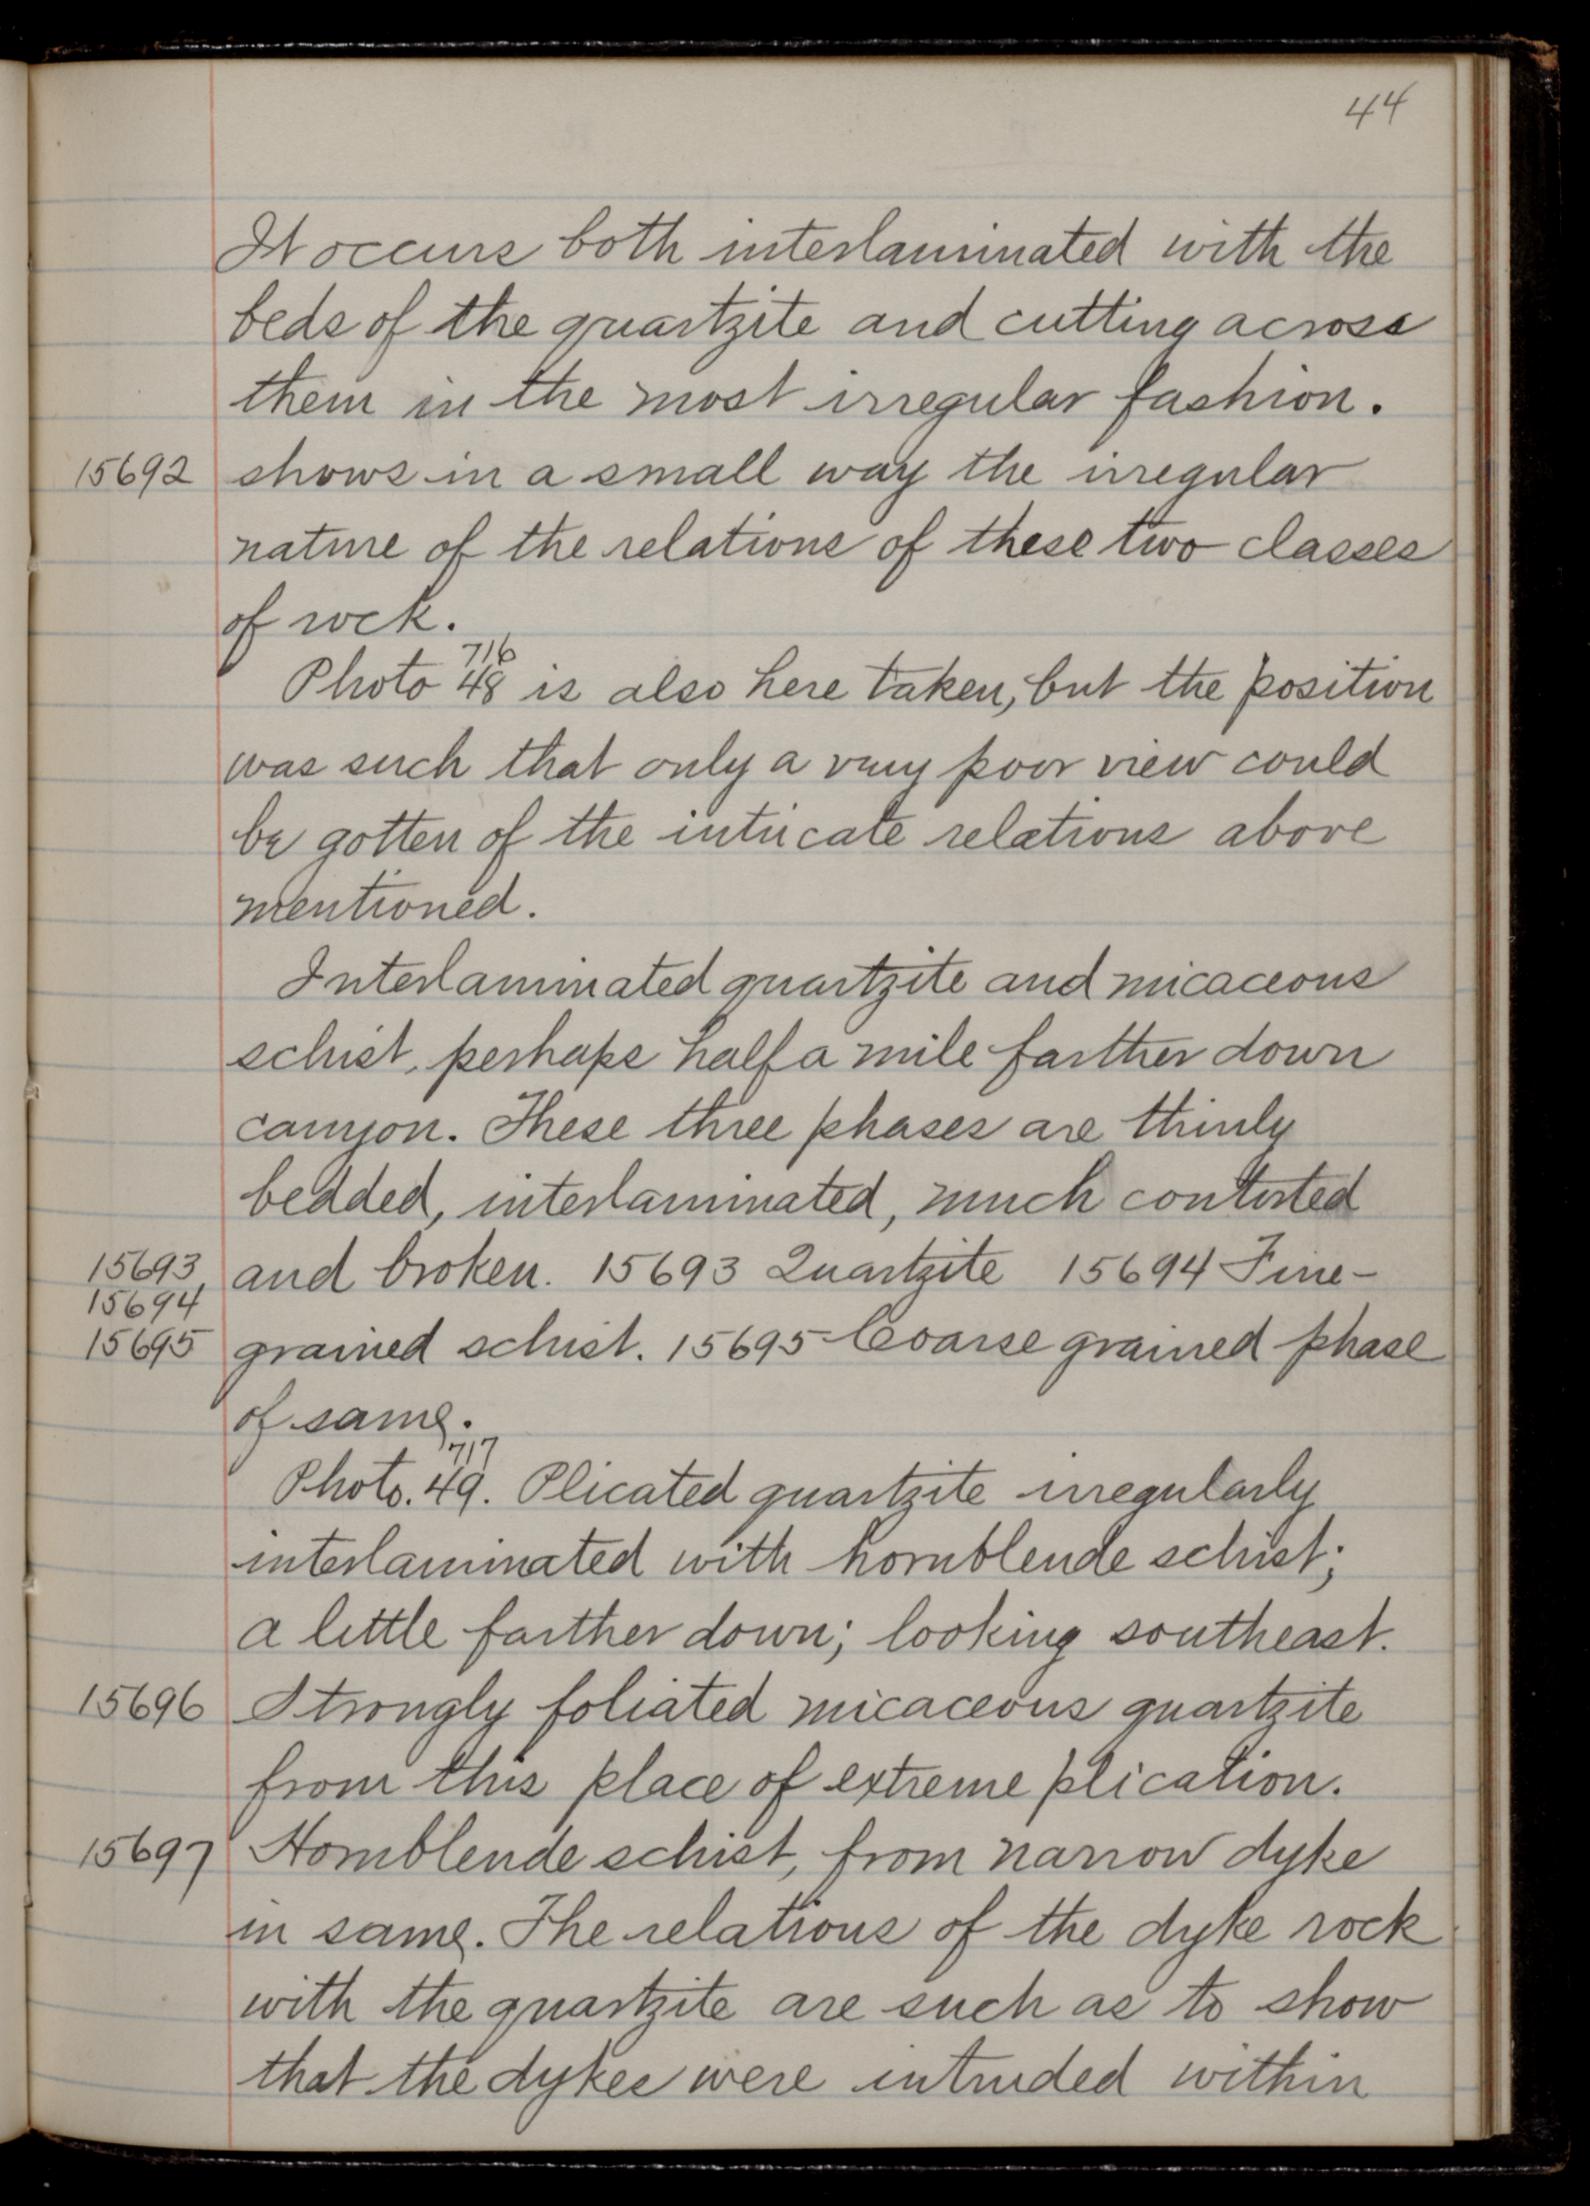 44
It occurs both interlaminated with the
beds of the quartzite and cutting across
them in the most irregular fashion.
15692 shows in a small way the irregular
nature of the relations of these two classes
of rock.
716
Photo 48 is also here taken, but the position
was such that only a very poor view could
be gotten of the intricate relations above
mentioned.
Interlaminated quartzite and micaceous
schist, perhaps half a mile farther down
canyon. These three phases are thinly
bedded, interlaminated, much contorted
15693, and broken. 15693 Quartzite 15694 Fine-
15694
15695 grained schist. 15695 Coarse grained phase
of same.
717
Photo. 49. Plicated quartzite irregularly
interlaminated with hornblende schist;
a little farther down; looking southeast.
15696 Strongly foliated micaceous quartzite
from this place of extreme plication.
15697 Hornblende schist, from narrow dyke
in same. The relations of the dyke rock
with the quartzite are such as to show
that the dykes were intruded within